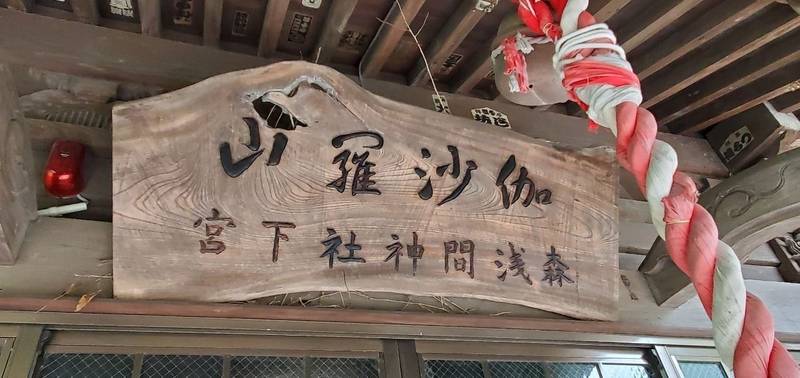 伽沙羅山
森浅間神社下宮